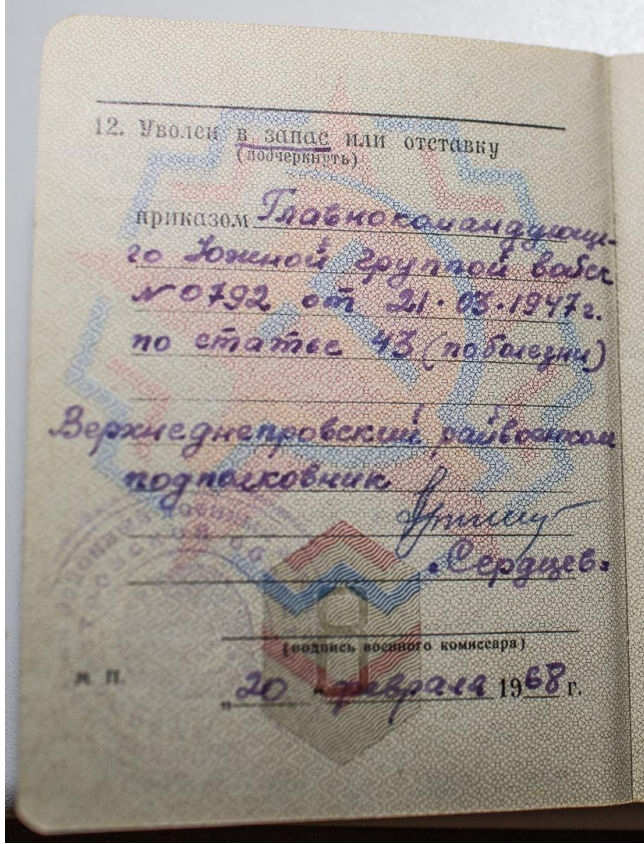 12. Уволен в запас или отставку
(подчеркнуть)
приказом Главнокомандующе-
го Южной группой войск
№0792 от 21.03.1947г.
по статье 43 (по болезни)
Верхнеднепровский райвоенком
подполковник
"Сердцев"
(подпись военного комиссара)
М. П.
„20" февраля 1968 г.